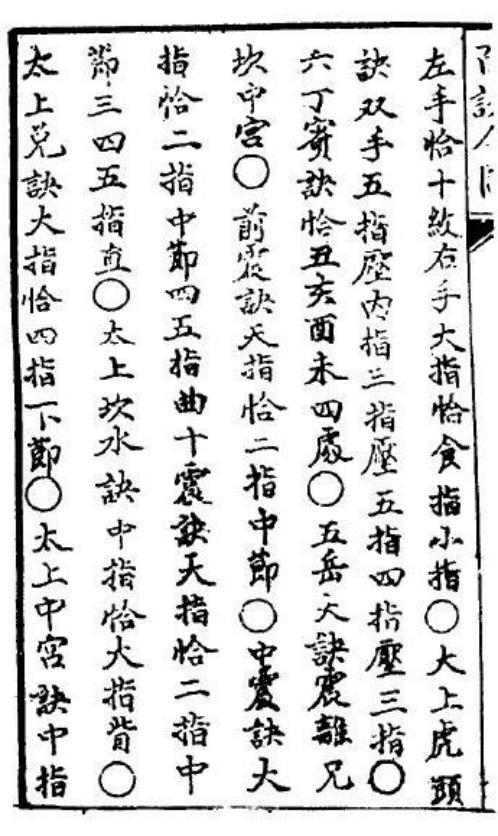 左手恰十紋右手大指恰食指小指〇大上虎頭
訣双手五指壓内指三指壓五指四指壓三指〇
六丁賓訣恰丑亥酉未四處〇五岳大訣震離兄
坎中宮〇前震訣天指恰二指中節〇中震訣大
指恰二指中節四五指曲十震訣天指恰二指中
節三四五指直〇太上坎水訣中指恰大指背〇
太上兑訣大指恰四指下節〇太上中宮訣中指